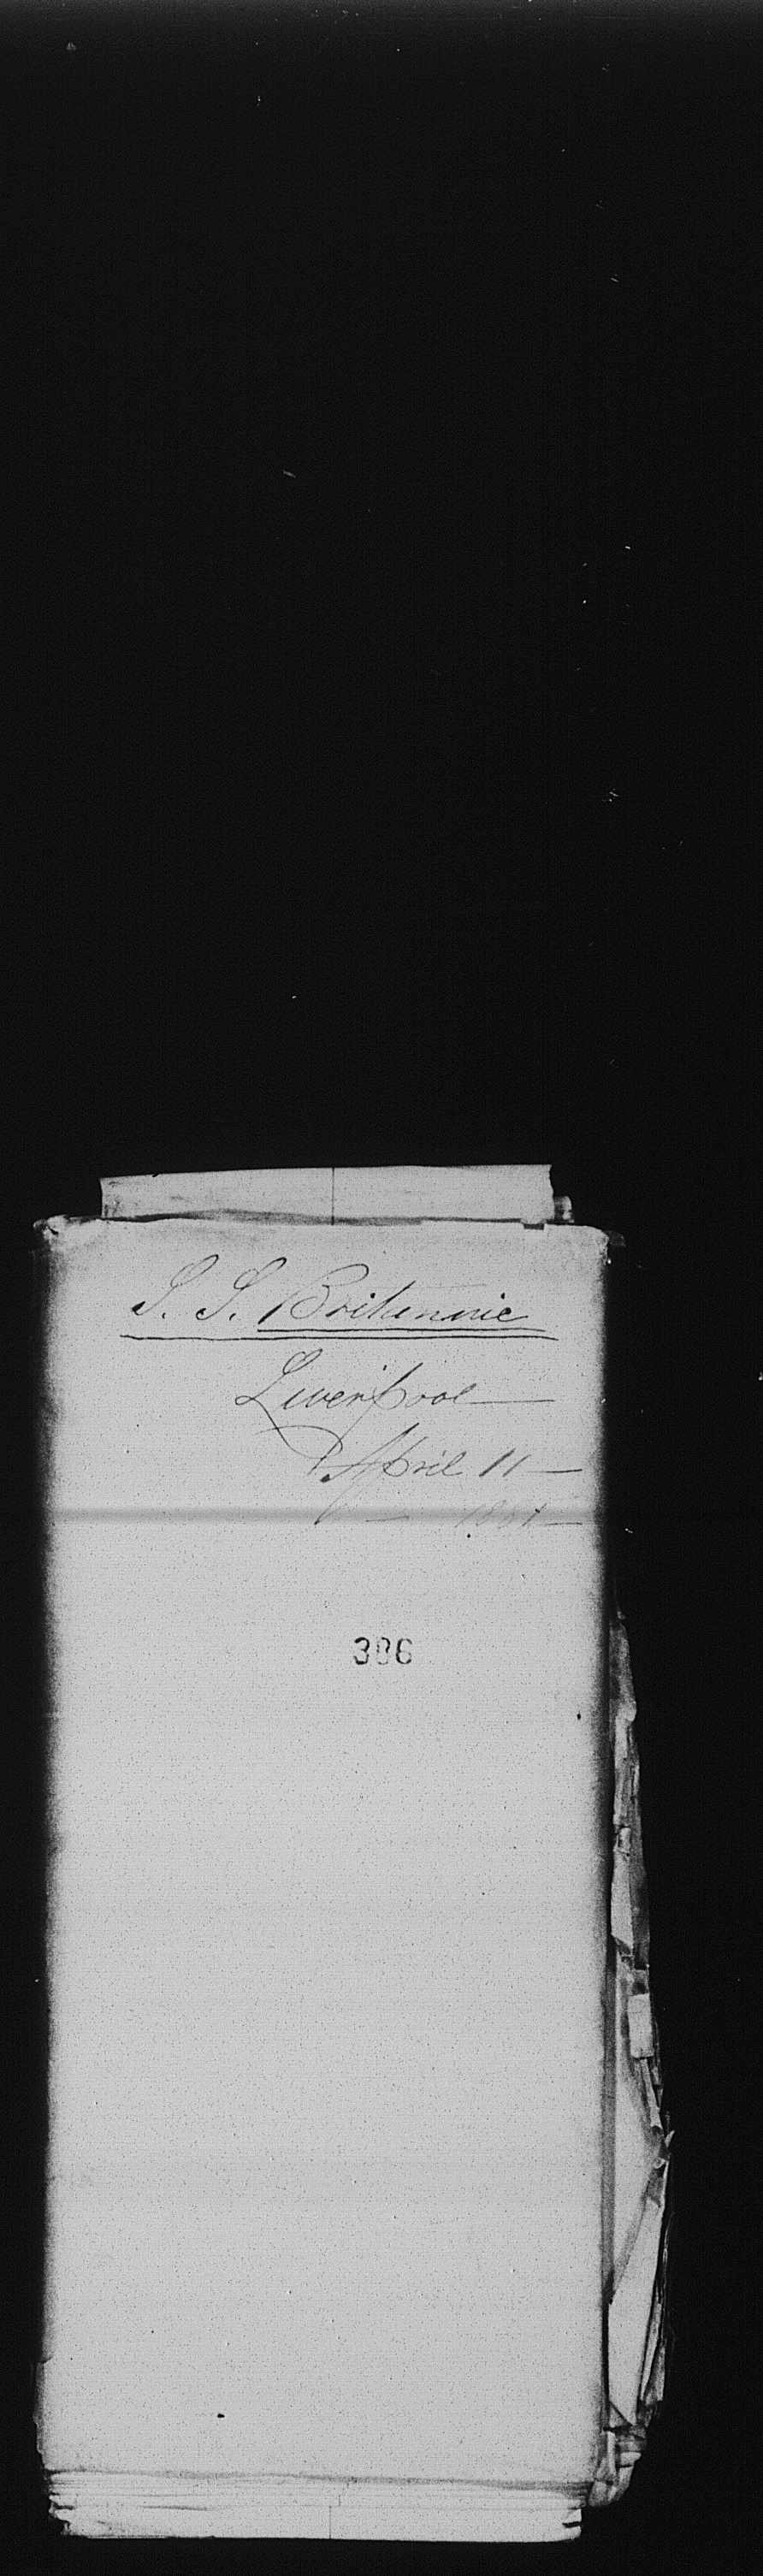 S. S. Britannic
Liverpool
April 11
386